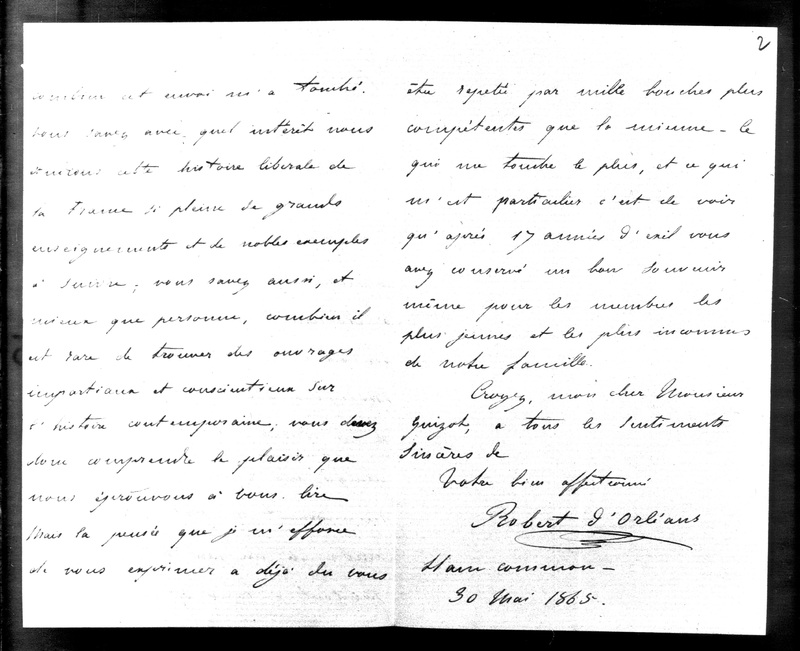 combien cet envoi m'a touché.
Vous savez avec quel intérêt nous
suivons cette histoire libérale de
la France si pleine de grands
enseignements et de nobles exemples
à suivre; vous savez aussi, et
mieux que personne, combien il
est rare de trouver des ouvrages
impartiaux et consciencieux sur
l'histoire contemporaine; vous devez
donc comprendre le plaisir que
nous éprouvons à vous lire
Mais la pensée que je m'efforce
de vous exprimer a déjà du vous
2
être repetée par mille bouches plus
compétentes que la mienne - Ce
qui me touche le plus, et ce qui
m'est particulier c'est de voir
qu'après 17 années d'exil vous
avez conservé un bon souvenir
même pour les membres les
plus jeunes et les plus inconnus
de notre famille.
Croyez, mon cher Monsieur
Guizot, a tous les sentiments
sincères de
Votre bien affectionné
Robert d'Orléans
Ham common -
30 Mai 1865.